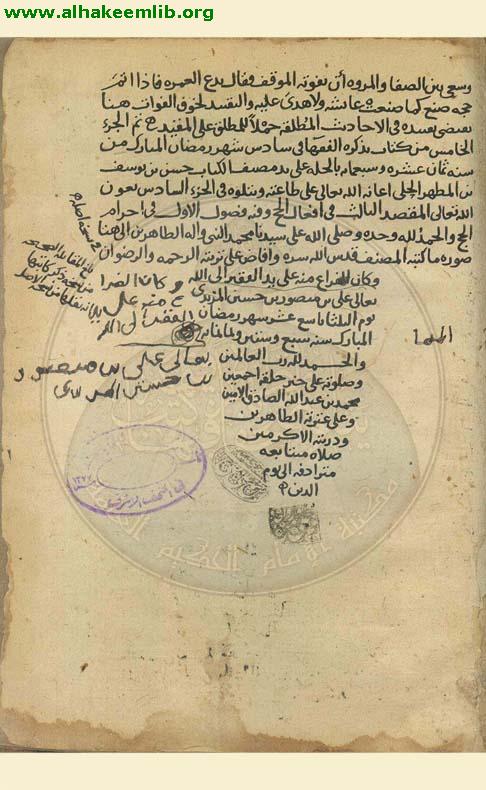 www.alhakeemlib.org
وسعى بين الصفا والمروه أن يفوته الموقف فقال يدع العمره فاذا اتم
حجه صنع كما صنعت عائشه ولا هدى عليه والتقييد لخوف الفوات هنا
يقتضى تقييده فى الاحاديث المطلقه حملا للمطلق على المقيد تم الجزء
الخامس من كتاب تذكره الفقها فى سادس شهر رمضان المبارك من
سنه ثمان عشره وسبعمايه بالحله على يد مصنف الكتاب حسن بن يوسف
بن المطهر الحلى اعانه الله تعالى على طاعته ويتلوه فى الجزء السادس بعون
الله تعالى المقصد الثالث فى افعال الحج وفيه فصول الاول فى احرام
الحج والحمد لله وحده وصلى الله على سيدنا محمد النبى واله الطاهرين الى هنا
صوره ما كتبه المصنف قدس الله سره وافاض على تربته الرحمه والرضوان
وكان الفراغ منه على يد الفقير الى الله
تعالى على بن منصور بن حسين المزيدى
يوم الثلثا تاسع عشر شهر رمضان
المبارك سنه سبع وستين وثمانمايه
والحمد لله رب العالمين
وصلوته على خير خلقه اجمعين
محمد بن عبد الله الصادق الامين
وعلى عترته الطاهرين
وذريته الاكرمين
صلاه متتابعه
مترادفه الى يوم
الدين
الفقير الى الله
تعالى على بن منصور
بن حسين المزيدى